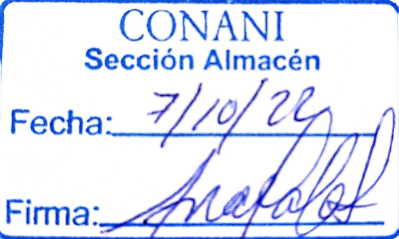 CONANI
Sección Almacén
Fecha: 7/10/22
Firma: